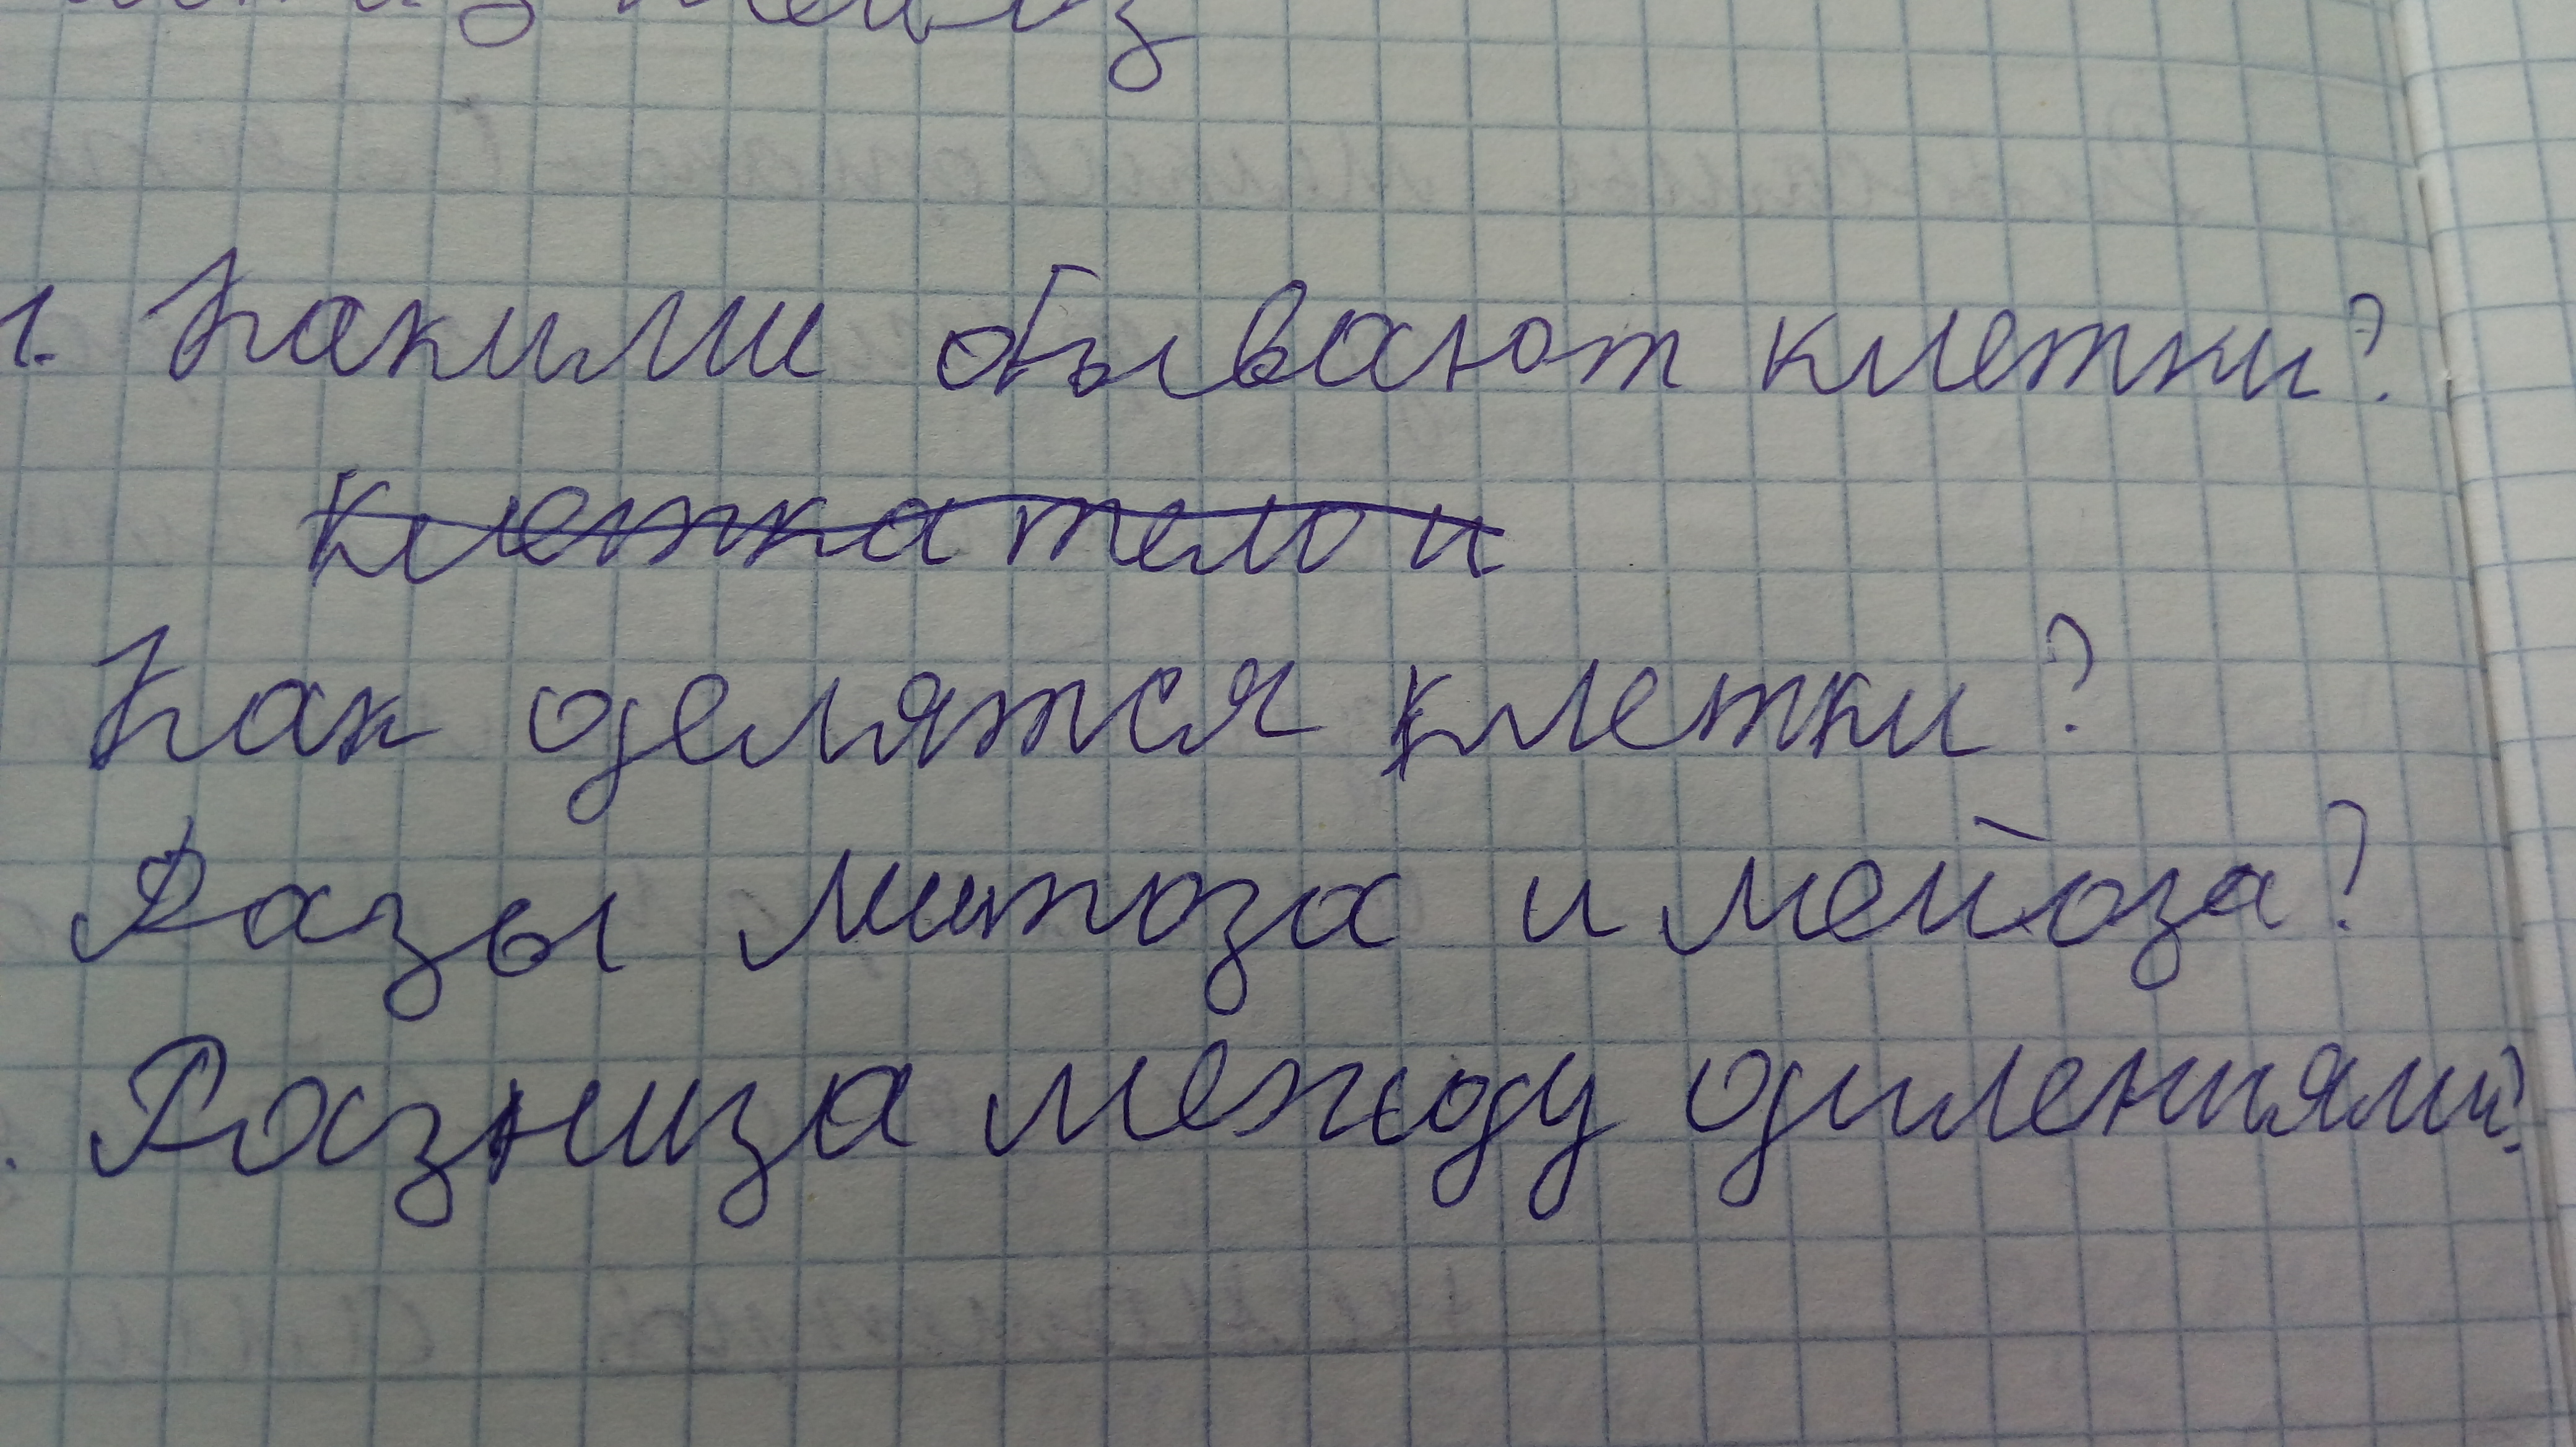 1. Какими бывают клетки?
клетка тело и
Как делятся клетки?
Фазы митоза и мейоза?
Разница между дилениями?